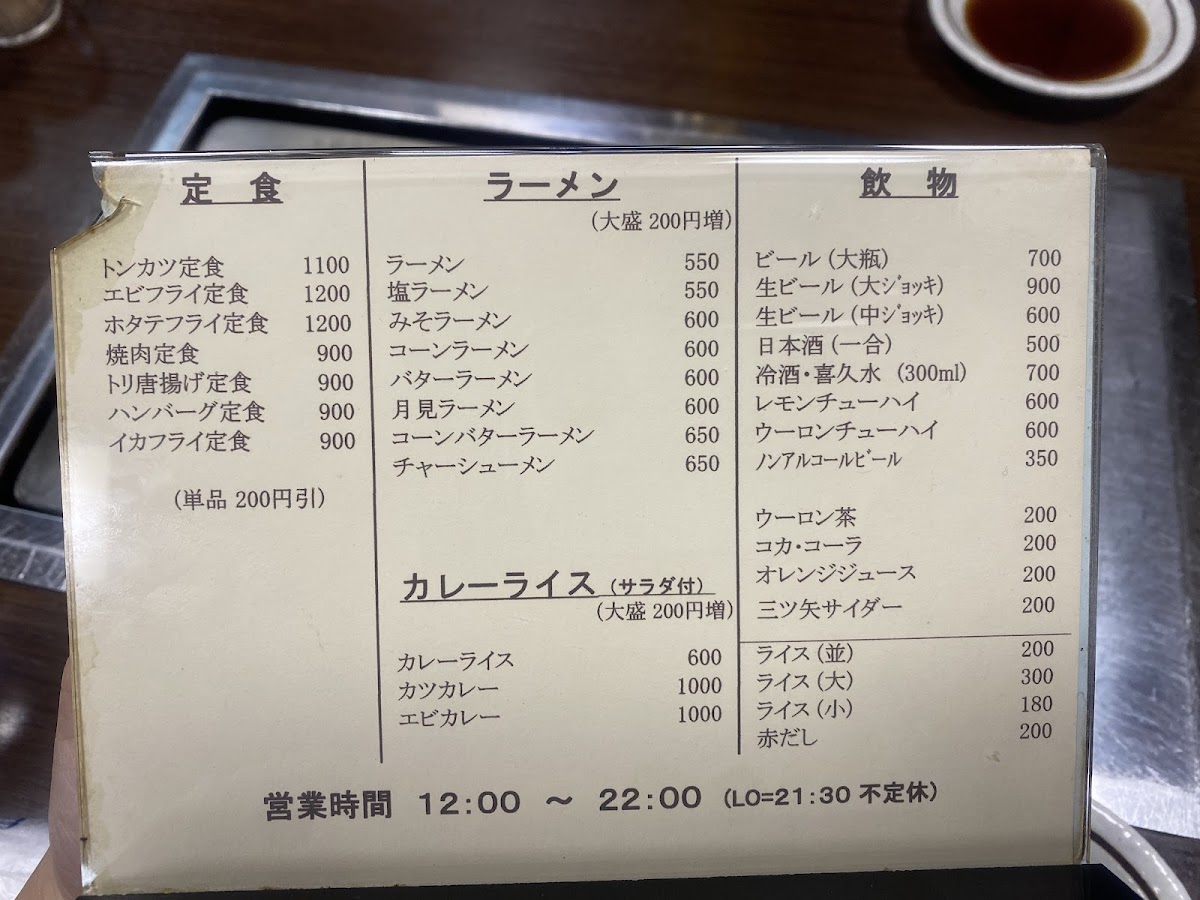 定 食
トンカツ定食 1100
エビフライ定食 1200
ホタテフライ定食 1200
焼肉定食 900
トリ唐揚げ定食 900
ハンバーグ定食 900
イカフライ定食 900
(単品 200円引)
ラーメン
(大盛 200円増)
ラーメン 550
塩ラーメン 550
みそラーメン 600
コーンラーメン 600
バターラーメン 600
月見ラーメン 600
コーンバターラーメン 650
チャーシューメン 650
カレーライス (サラダ付)
(大盛 200円増)
カレーライス 600
カツカレー 1000
エビカレー 1000
飲 物
ビール (大瓶) 700
生ビール (大ｼﾞｮッキ) 900
生ビール (中ｼﾞｮッキ) 600
日本酒 (一合) 500
冷酒・喜久水 (300ml) 700
レモンチューハイ 600
ウーロンチューハイ 600
ﾉﾝｱﾙｺｰﾙﾋﾞｰﾙ 350
ウーロン茶 200
コカ・コーラ 200
オレンジジュース 200
三ツ矢サイダー 200
ライス (並) 200
ライス (大) 300
ライス (小) 180
赤だし 200
営業時間 12:00 ～ 22:00 (LO=21:30 不定休)